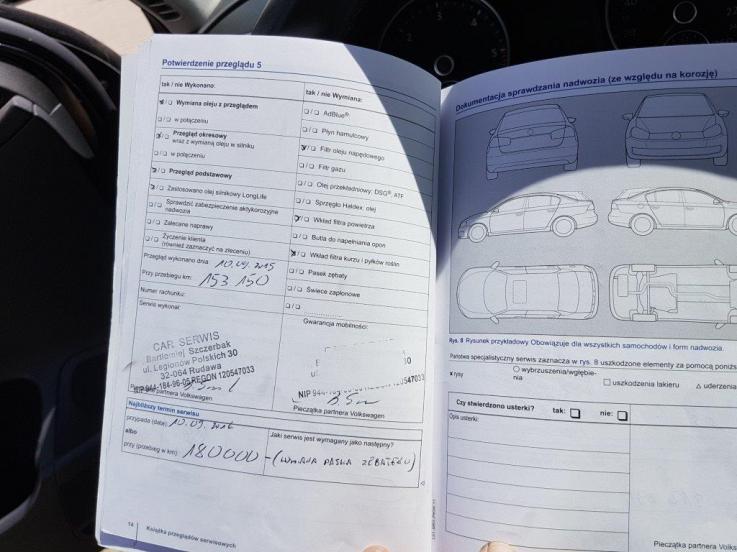 Potwierdzenie przeglądu 5
tak / nie Wykonano:
Wymiana oleju z przeglądem
w połączeniu
Przegląd okresowy
wraz z wymianą oleju w silniku
w połączeniu
Przegląd podstawowy
Zastosowano olej silnikowy LongLife
Sprawdzić zabezpieczenie antykorozyjne
nadwozia
Zalecane naprawy
Życzenie klienta
(również zaznaczyć na zleceniu)
Przegląd wykonano dnia 10.09.2015
Przy przebiegu km: 153 150
Numer rachunku:
Serwis wykonał:
CAR SERWIS
Bartłomiej Szczerbak
ul. Legionów Polskich 30
32-064 Rudawa
NIP 944-184-96-05 REGON 120547033
Pieczątka partnera Volkswagen
tak / nie Wymiana:
AdBlue®
Płyn hamulcowy
Filtr oleju napędowego
Filtr gazu
Olej przekładniowy: DSG®, ATF
Sprzęgło Haldex: olej
Wkład filtra powietrza
Butla do napełniania opon
Wkład filtra kurzu i pyłków roślin
Pasek zębaty
Świece zapłonowe
Gwarancja mobilności:
Pieczątka partnera Volkswagen
Najbliższy termin serwisu
przypada (data): 10.09.2016
albo
przy (przebieg w km): 180000
Jaki serwis jest wymagany jako następny?
- (WYMIANA PASKA ZĘBATEGO)
14
Książka przeglądów serwisowych
Dokumentacja sprawdzania nadwozia (ze względu na korozję)
Rys. 8 Rysunek przykładowy Obowiązuje dla wszystkich samochodów i form nadwozia.
Państwa specjalistyczny serwis zaznacza w rys. 8 uszkodzone elementy za pomocą poniż
x rysy
wybrzuszenia/wgłębie-
nia
uszkodzenia lakieru
uderzenia
Czy stwierdzono usterki?
tak:
nie:
Opis usterki:
Pieczątka partnera Vo